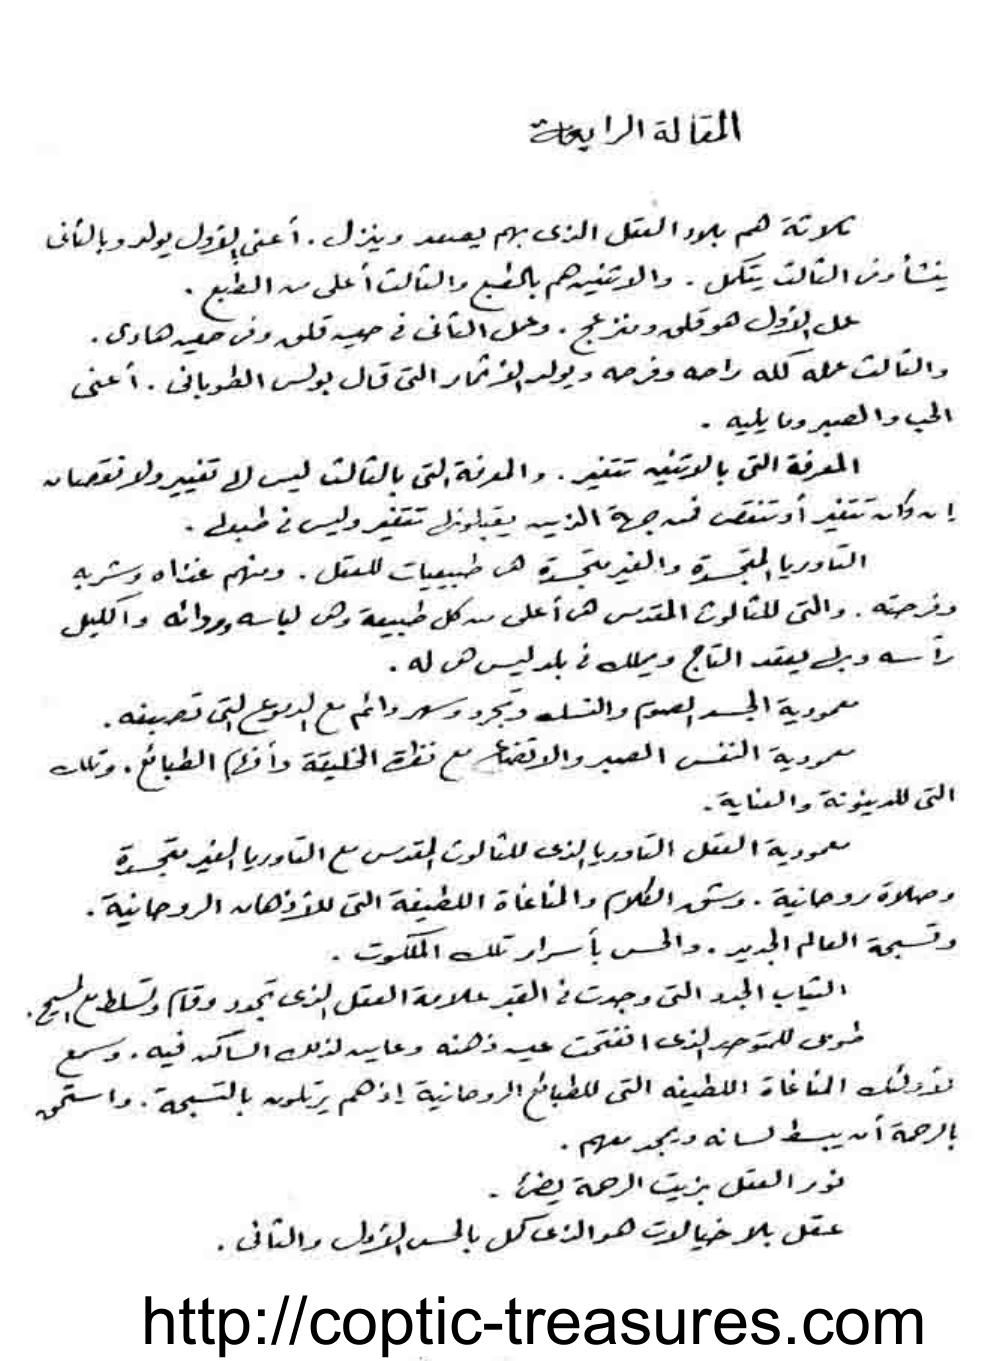 المقالة الرابعة
ثلاثة هم بلاد العقل الذى بهم يصعد وينزل . أعنى الأول يولد وبالثانى
ينشأ وفى الثالث يتكمل . والاثنين هم بالطبع والثالث أعلى من الطبع .
عمل الأول هو قلق ومنزعج . وعمل الثانى فى حين قلق وفى حين هادى .
والثالث عمله كله راحه وفرحه ويولد الأثمار التى قال بولس الطوبانى . أعنى
الحب والصبر وما يليه .
المعرفة التى بالاثنين تتغير . والمعرفة التى بالثالث ليس لها تغيير ولا نقصان
إن كان تتغير أو تنقص فمن جهة الذين يقبلونها تتغير وليس فى طبعها .
التاوريا المتجسدة والغير متجسدة هى طبيعيات للعقل . ومنهم غذاه وشربه
وفرحته . والتى للثالوث المقدس هى أعلى من كل طبيعة وهى لباسه وردائه واكليل
رأسه وبها يعقد التاج ويملك فى بلد ليس هى له .
معمودية الجسد الصوم والنسك وتجرد وسهر دائم مع الدموع التى تصبغه .
معمودية النفس الصبر والاتضاع مع نظرة الخليقة وأفهام الطبائع . وتلك
التى للدينونة والعناية .
معمودية العقل التاوريا الذى للثالوث المقدس مع التاوريا الغير متجسدة
وصلاة روحانية . وشق الكلام والمناغاة اللطيفة التى للأذهان الروحانية .
وتسبحة العالم الجديد . والحس بأسرار تلك الملكوت .
الثياب الجدد التى وجدت فى القبر علامة العقل الذى تجدد وقام وتسلط مع المسيح .
طوبى للمتوحد الذى انفتحت عين ذهنه وعاين لذلك الساكن فيه . وسمع
لأولئك المناغاة اللطيفه التى للطبائع الروحانية إذ هم يرتلون بالتسبحة . واستحق
بالرحمة أن يبسط لسانه ويمجد معهم .
نور العقل بزيت الرحمة يضئ .
عقل بلا خيالات هو الذى كمل بالحس الأول والثانى .
http://coptic-treasures.com